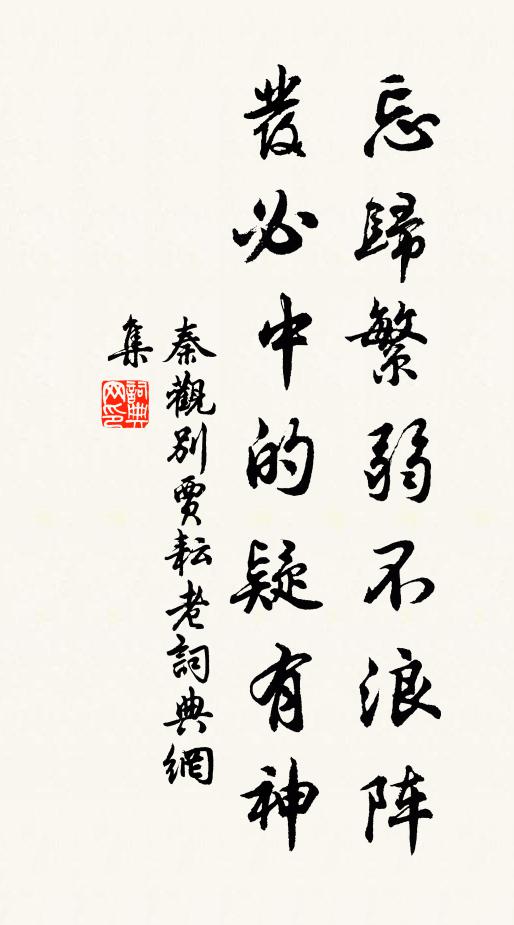 忘歸繁弱不浪阵
發必中的疑有神
秦觀别贾耘老詞典網
集
詞典网印